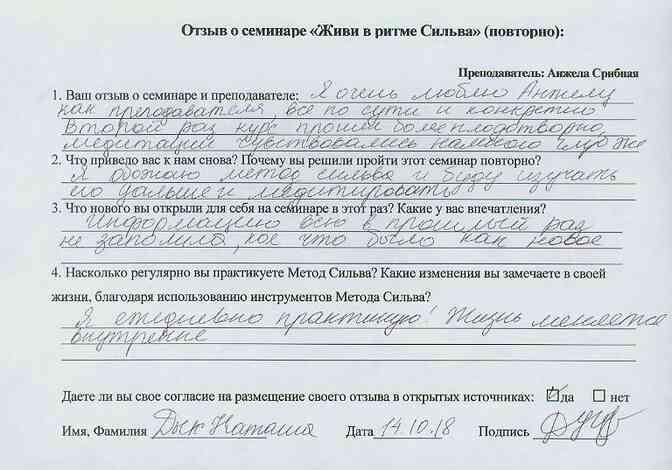 Отзыв о семинаре «Живи в ритме Сильва» (повторно):
Преподаватель: Анжела Срибная
1. Ваш отзыв о семинаре и преподавателе: Я очень люблю Анжелу
как преподавателя, всё по сути и конкретно
Второй раз курс прошёл более плодотворно,
медитации чувствовались намного глубже
2. Что приведо вас к нам снова? Почему вы решили пройти этот семинар повторно?
Я обожаю метод сильва и буду изучать
его дальше и медитировать
3. Что нового вы открыли для себя на семинаре в этот раз? Какие у вас впечатления?
Информацию всю в прошлый раз
не запомнила, кое что было как новое
4. Насколько регулярно вы практикуете Метод Сильва? Какие изменения вы замечаете в своей
жизни, благодаря использованию инструментов Метода Сильва?
Я ежедневно практикую! Жизнь меняется
внутренне
Даете ли вы свое согласие на размещение своего отзыва в открытых источниках: ☑ да ☐ нет
Имя, Фамилия Дык Наташа Дата 14.10.18 Подпись